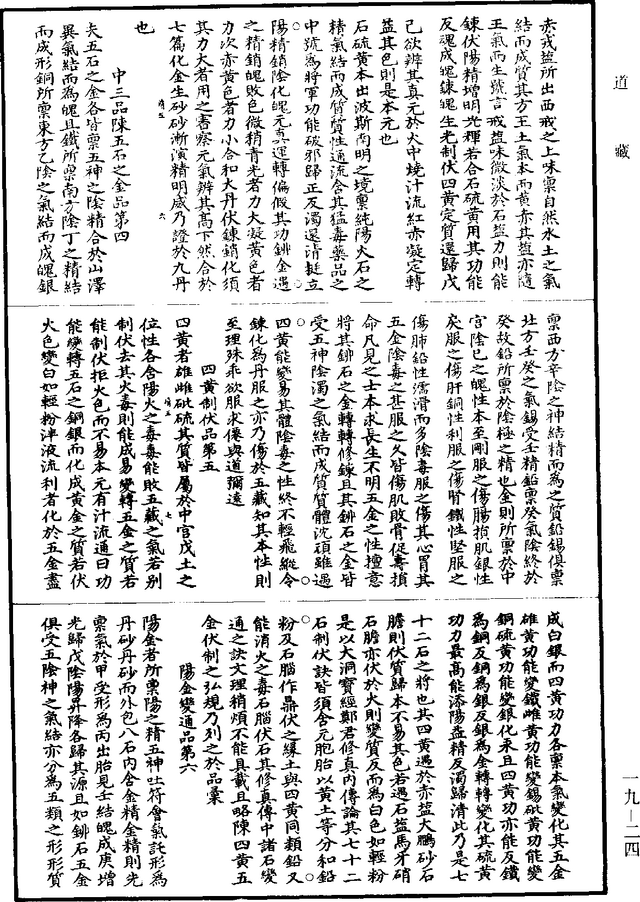 道藏
赤戎盬所出西戎之上味稟自然水土之氣
結而成質其方王土氣本而黄赤其盬亦隨
王氣而生號言戎盬味微淡於石盬力則能
鍊伏陽精增明光輝若合石硫黄用其功能
反魂成魄鍊魄生光制伏四黄定質還歸戊
己欲辨其真元於火中燒汁流紅赤凝定轉
益其色則是本元也
石硫黄本出波斯南明之境稟純陽火石之
精氣結而成質質性通流含其猛毒藥品之
中號為將軍功能破邪歸正反濁還清挺立
陽精銷陰化魄元真運轉偏假其功銖金遇
之精銷魄敗色微精青光者力大凝黄色者
力次赤黄色者力小合和大丹伏鍊銷化須
其力大者用之審察元氣辨其高下然合於
七篇化金生砂砂漸演精明威乃證於九丹
也
中三品陳五石之金品第四
夫五石之金各皆稟五神之陰精合於山澤
異氣結而為魄且鐵所稟南方陰丁之精結
而成形銅所稟東方乙陰之氣結而成魄銀
稟西方辛陰之神結精而為之質鉛錫俱稟
北方壬癸之氣錫受壬精鉛稟癸氣陰終於
癸故鉛所稟於陰極之精也金則所稟於中
宮陰己之魄性本至剛服之傷腸損肌銀性
戾服之傷肝銅性利服之傷腎鐵性堅服之
傷肺鉛性濡滑而多陰毒服之傷其心胃其
五金陰毒之甚服之久皆傷肌敗骨促壽損
命凡見之士本求長生不明五金之性擅意
將其銖石之金轉轉修鍊且其銖石之金皆
受五神陰濁之氣結而成質質體沈頑雖遇
四黄能變易其體陰毒之性終不輕飛縱令
鍊化為丹服之亦乃傷於五藏知其本性則
至理殊乖欲服求僊與道彌遠
四黄制伏品第五
四黄者雄雌砒硫其質皆屬於中宮戊土之
位性各含陽火之毒毒能敗五藏之氣若別
制伏去其火毒則能成易變轉五金之質若
能制伏拒火色而不易本元有汁流通曰功
能變轉五石之銅銀而化成黄金之質若伏
火色變白如輕粉泮液流利者化於五金盡
成白銀而四黄功力各稟本氣變化其五金
雄黄功能變鐵雌黄功能變錫砒黄功能變
銅硫黄功能變銀化汞且四黄功亦能反鐵
為銅反銅為銀反銀為金轉轉變化其硫黄
功力最高能添陽益精反濁歸清此乃是七
十二石之將也其四黄遇於赤盬大鵬砂石
膽則伏質歸本不易其色若遇石盬馬牙硝
石膽亦伏於火則變質反而為白色如輕粉
是以大洞寶經鄭君修真内傳論其七十二
石制伏訣皆須含元胞胎以黄土等分和鉛
粉及石腦作鼎伏之緣土與四黄同類鉛又
能消火之毒石腦伏石其修真傳中諸石變
通之訣文理稍煩不能具載且略陳四黄五
金伏制之弘規乃列之於品彙
陽金變通品第六
陽金者所稟陽之精五神吐符會氣託形為
丹砂丹砂而外包八石内含金精金精則先
稟氣於甲受形為丙出胎見壬結魄成庚增
光歸戊陰陽昇降各歸其源且如銖石五金
俱受五陰神之氣結亦分為五類之形形質
一九－二四